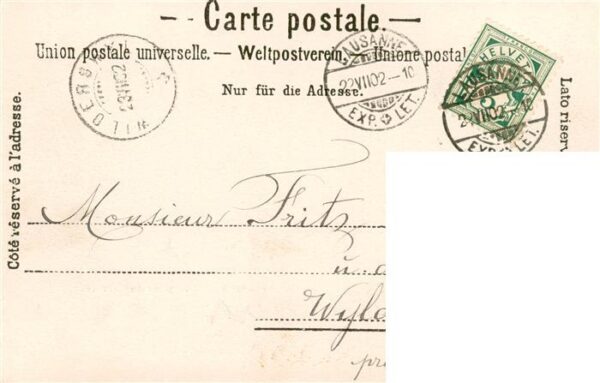 Carte postale.
Union postale universelle. — Weltpostverein. — Unione postal
Nur für die Adresse.
Côté réservé à l'adresse.
Lato riserv
LAUSANNE
22 VII 02 - 10
EXP. LET.
HELVE
LAUSANNE
22 VII 02 - 10
EXP. LET.
WILDERS
Monsieur Fritz